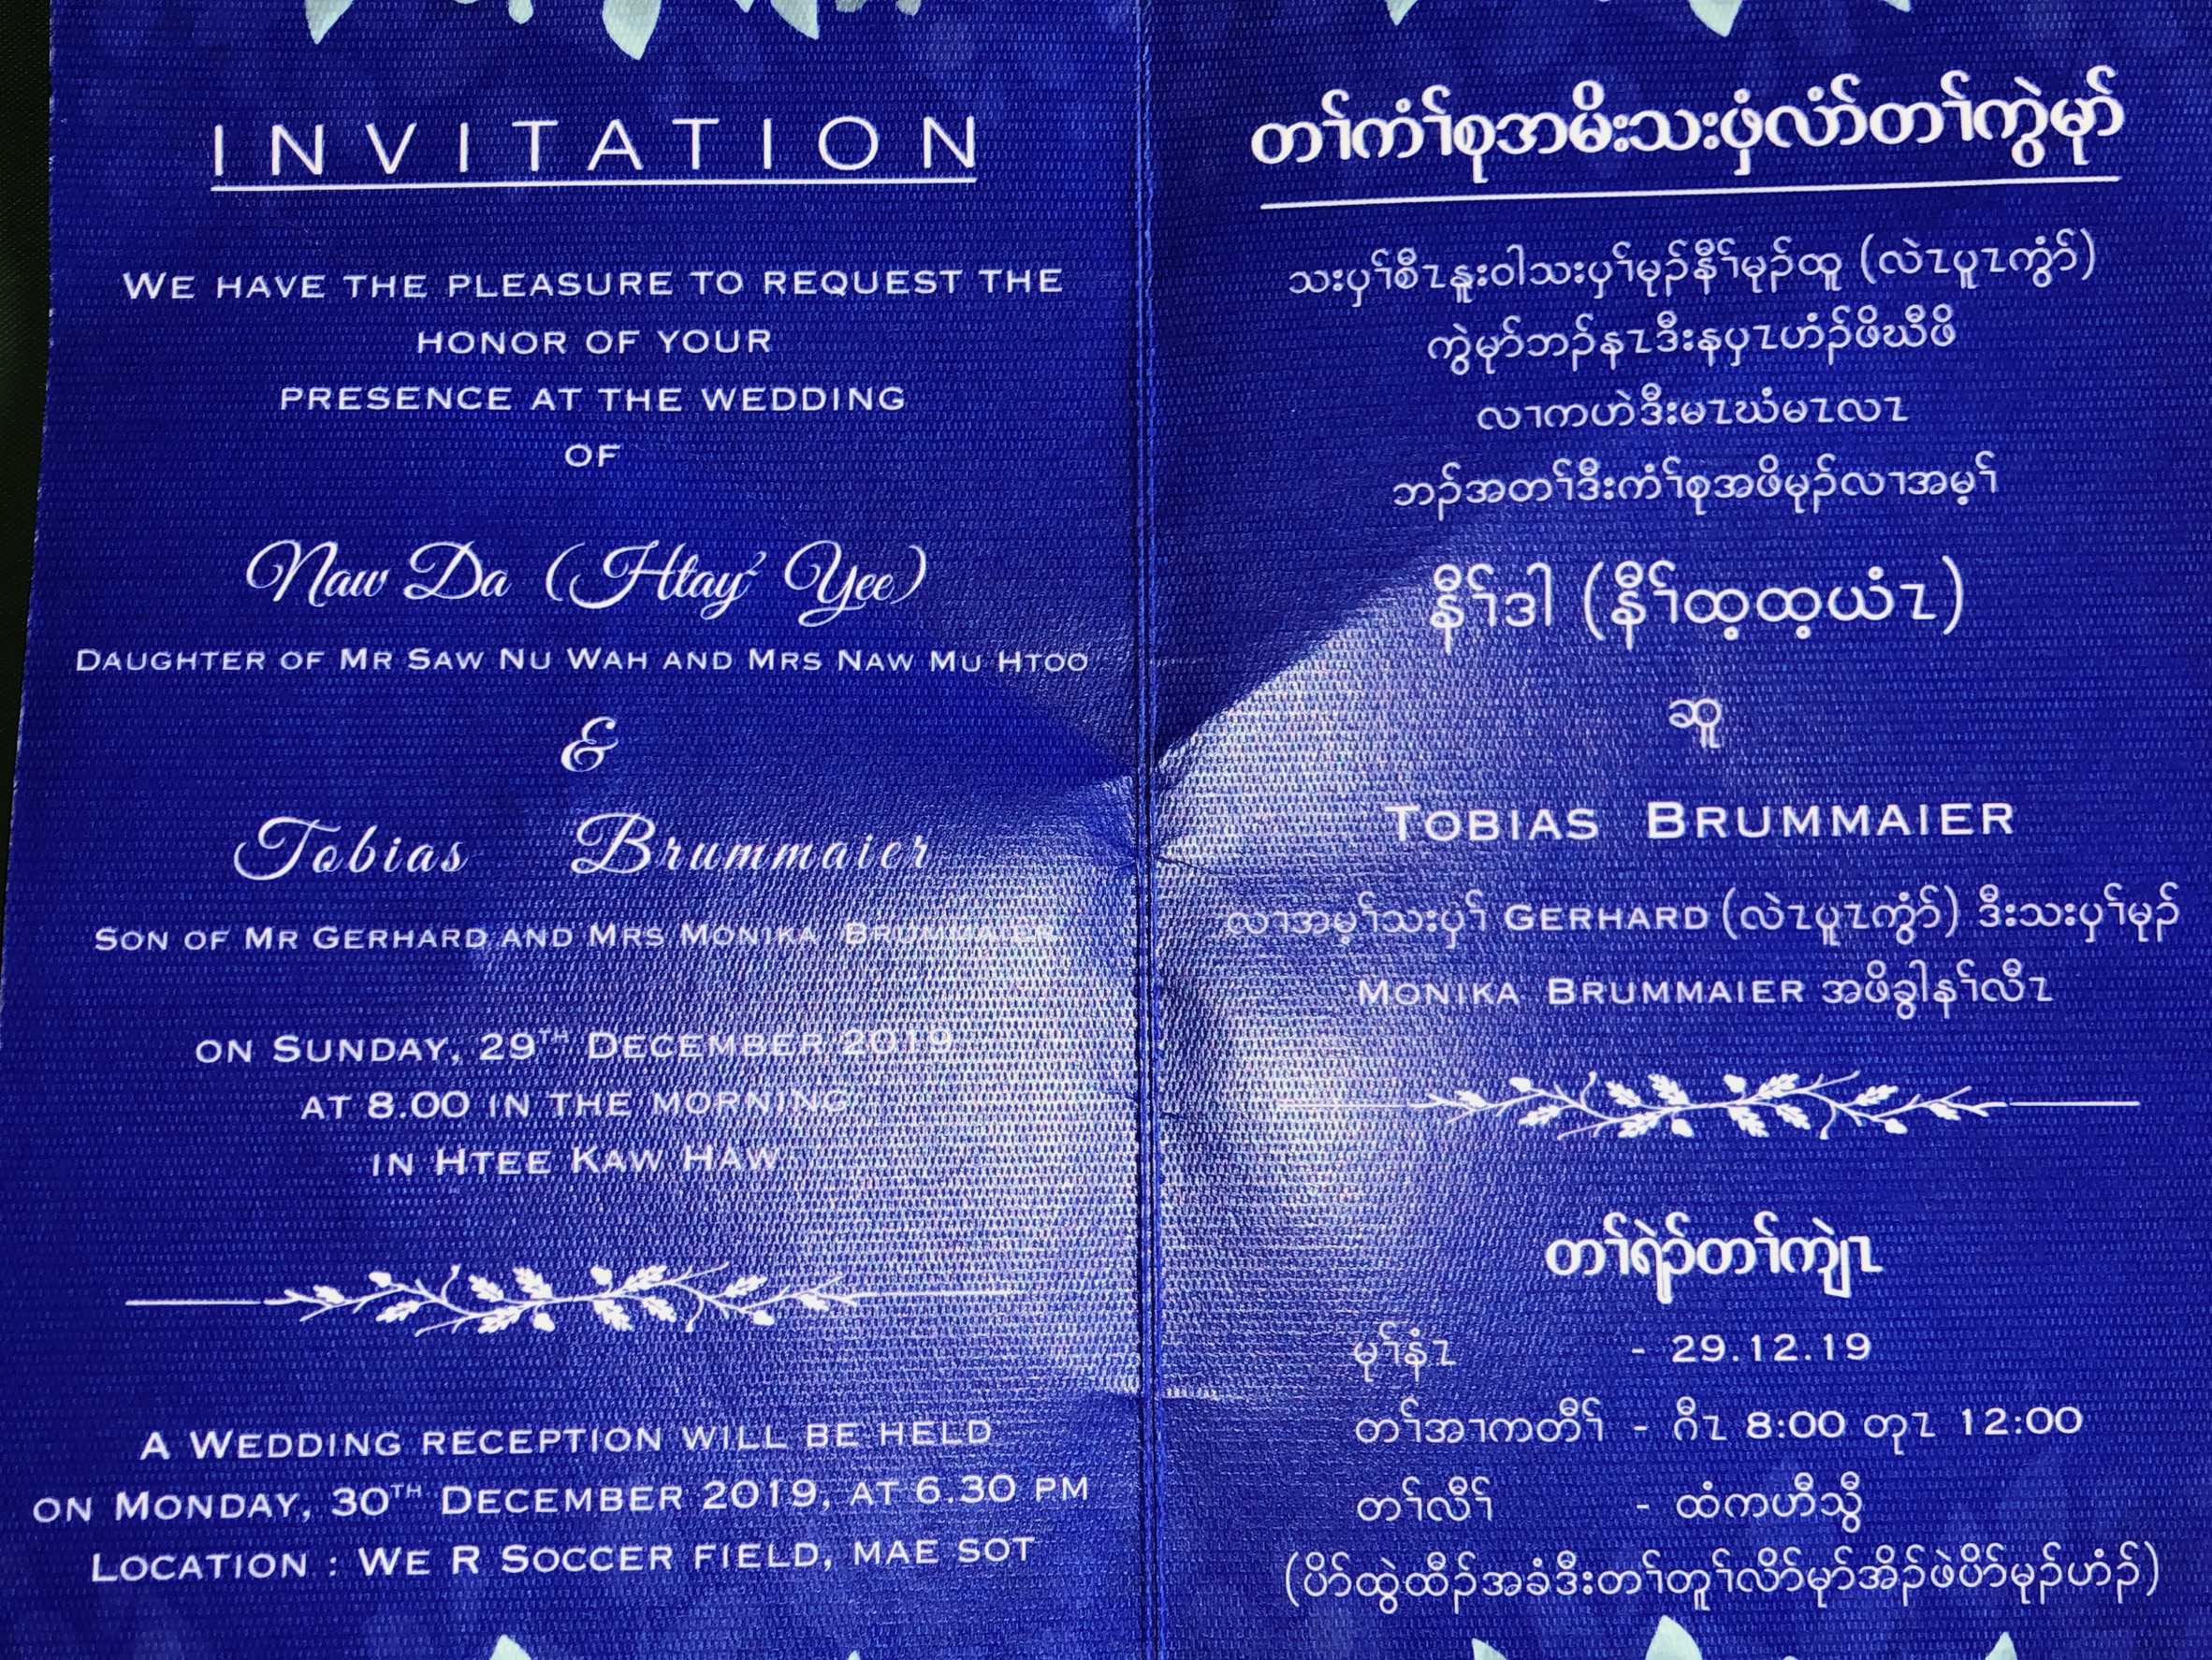 INVITATION
WE HAVE THE PLEASURE TO REQUEST THE
HONOR OF YOUR
PRESENCE AT THE WEDDING
OF
Naw Da (Htay² Yee)
DAUGHTER OF MR SAW NU WAH AND MRS NAW MU HTOO
&
Tobias Brummaier
SON OF MR GERHARD AND MRS MONIKA BRUMMAIER
ON SUNDAY, 29TH DECEMBER 2019
AT 8.00 IN THE MORNING
IN HTEE KAW HAW
A WEDDING RECEPTION WILL BE HELD
ON MONDAY, 30TH DECEMBER 2019, AT 6.30 PM
LOCATION : WE R SOCCER FIELD, MAE SOT
တၢ်ကံၢ်စုအမိးသးဖှံလံာ်တၢ်ကွဲမုာ်
သးပှၢ်စီၤနူးဝါသးပှၢ်မုၣ်နီၢ်မုၣ်ထူ (လဲၤပူၤကွံာ်)
ကွဲမုာ်ဘၣ်နၤဒီးနပှၤဟံၣ်ဖိဃီဖိ
လၢကဟဲဒီးမၤဃံမၤလၤ
ဘၣ်အတၢ်ဒီးကံၢ်စုအဖိမုၣ်လၢအမ့ၢ်
နီၢ်ဒါ (နီၢ်ထ့ထ့ယံၤ)
ဆူ
TOBIAS BRUMMAIER
လၢအမ့ၢ်သးပှၢ် GERHARD (လဲၤပူၤကွံာ်) ဒီးသးပှၢ်မုၣ်
MONIKA BRUMMAIER အဖိခွါနၢ်လီၤ
တၢ်ရဲၣ်တၢ်ကျဲၤ
မုၢ်နံၤ - 29.12.19
တၢ်အၢကတီၢ် - ဂီၤ 8:00 တုၤ 12:00
တၢ်လီၢ် - ထံကဟီသွီ
(ပိာ်ထွဲထီၣ်အခံဒီးတၢ်တူၢ်လိာ်မုာ်အိၣ်ဖဲပိာ်မုၣ်ဟံၣ်)